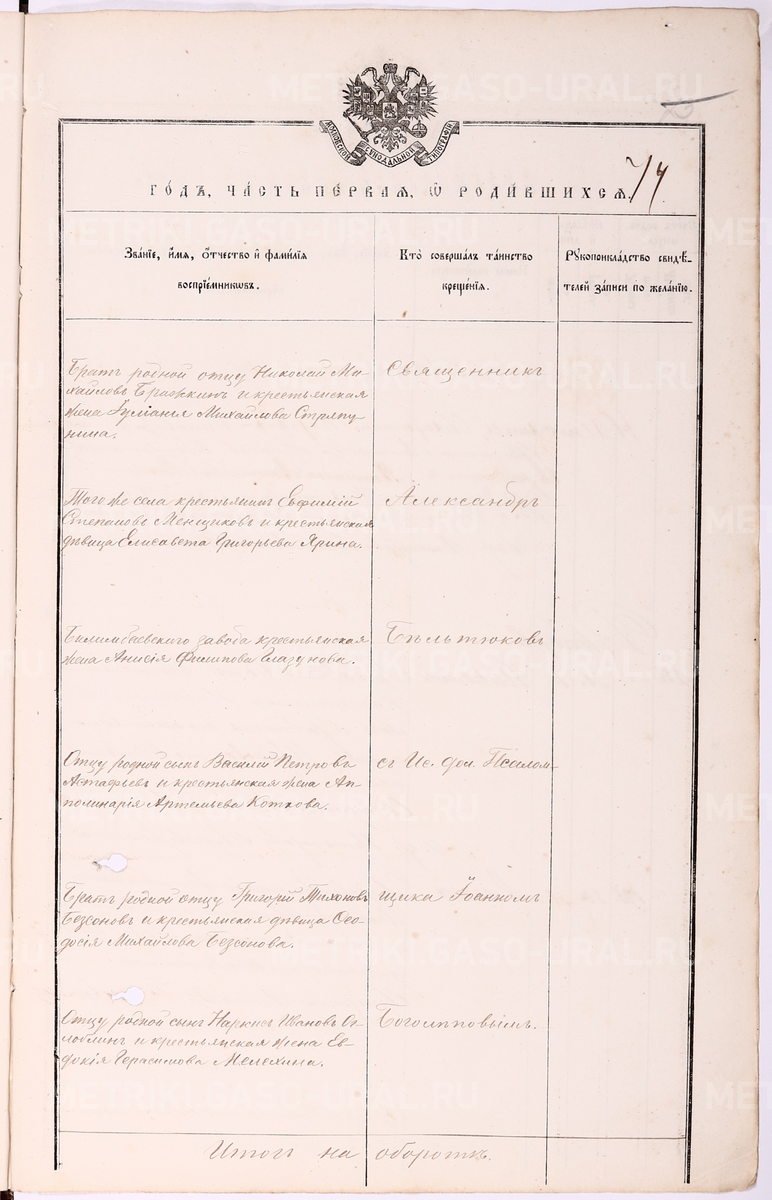 МОСКОВСКОЙ СУНОДАЛЬНОЙ ТИПОГРАФІИ
74
ГОДЪ, ЧАСТЬ ПЕРВАЯ, Ѡ РОДИВШИХСЯ.
Званіе, имя, отчество и фамилія
воспріемниковъ.
Кто совершалъ таинство
крещенія.
Рукоприкладство свидѣ-
телей записи по желанію.
Братъ родной отцу Николай Ми-
хайловъ Бражкинъ и крестьянская
жена Іуліанія Михайлова Стряпу-
нина.
Священникъ
Того же села крестьянинъ Евфимій
Степановъ Менщиковъ и крестьянская
дѣвица Елисавета Григорьева Ярина.
Александръ
Билимбаевскаго завода крестьянская
жена Анисія Филипова Глазунова.
Бѣльтюковъ
Отцу родной сынъ Василій Петровъ
Астафьевъ и крестьянская жена Ап-
полинарія Артемьева Коткова.
съ Ис. дол. Псалом-
Братъ родной отцу Григорій Тихоновъ
Безсоновъ и крестьянская дѣвица Ѳео-
досія Михайлова Безсонова.
щика Іоанномъ
Отцу родной сынъ Наркисъ Ивановъ Ог-
лоблинъ и крестьянская жена Ев-
докія Герасимова Мелехина.
Боголѣповымъ.
Итогъ на оборотѣ.
METRIKI.GASO-URAL.RU